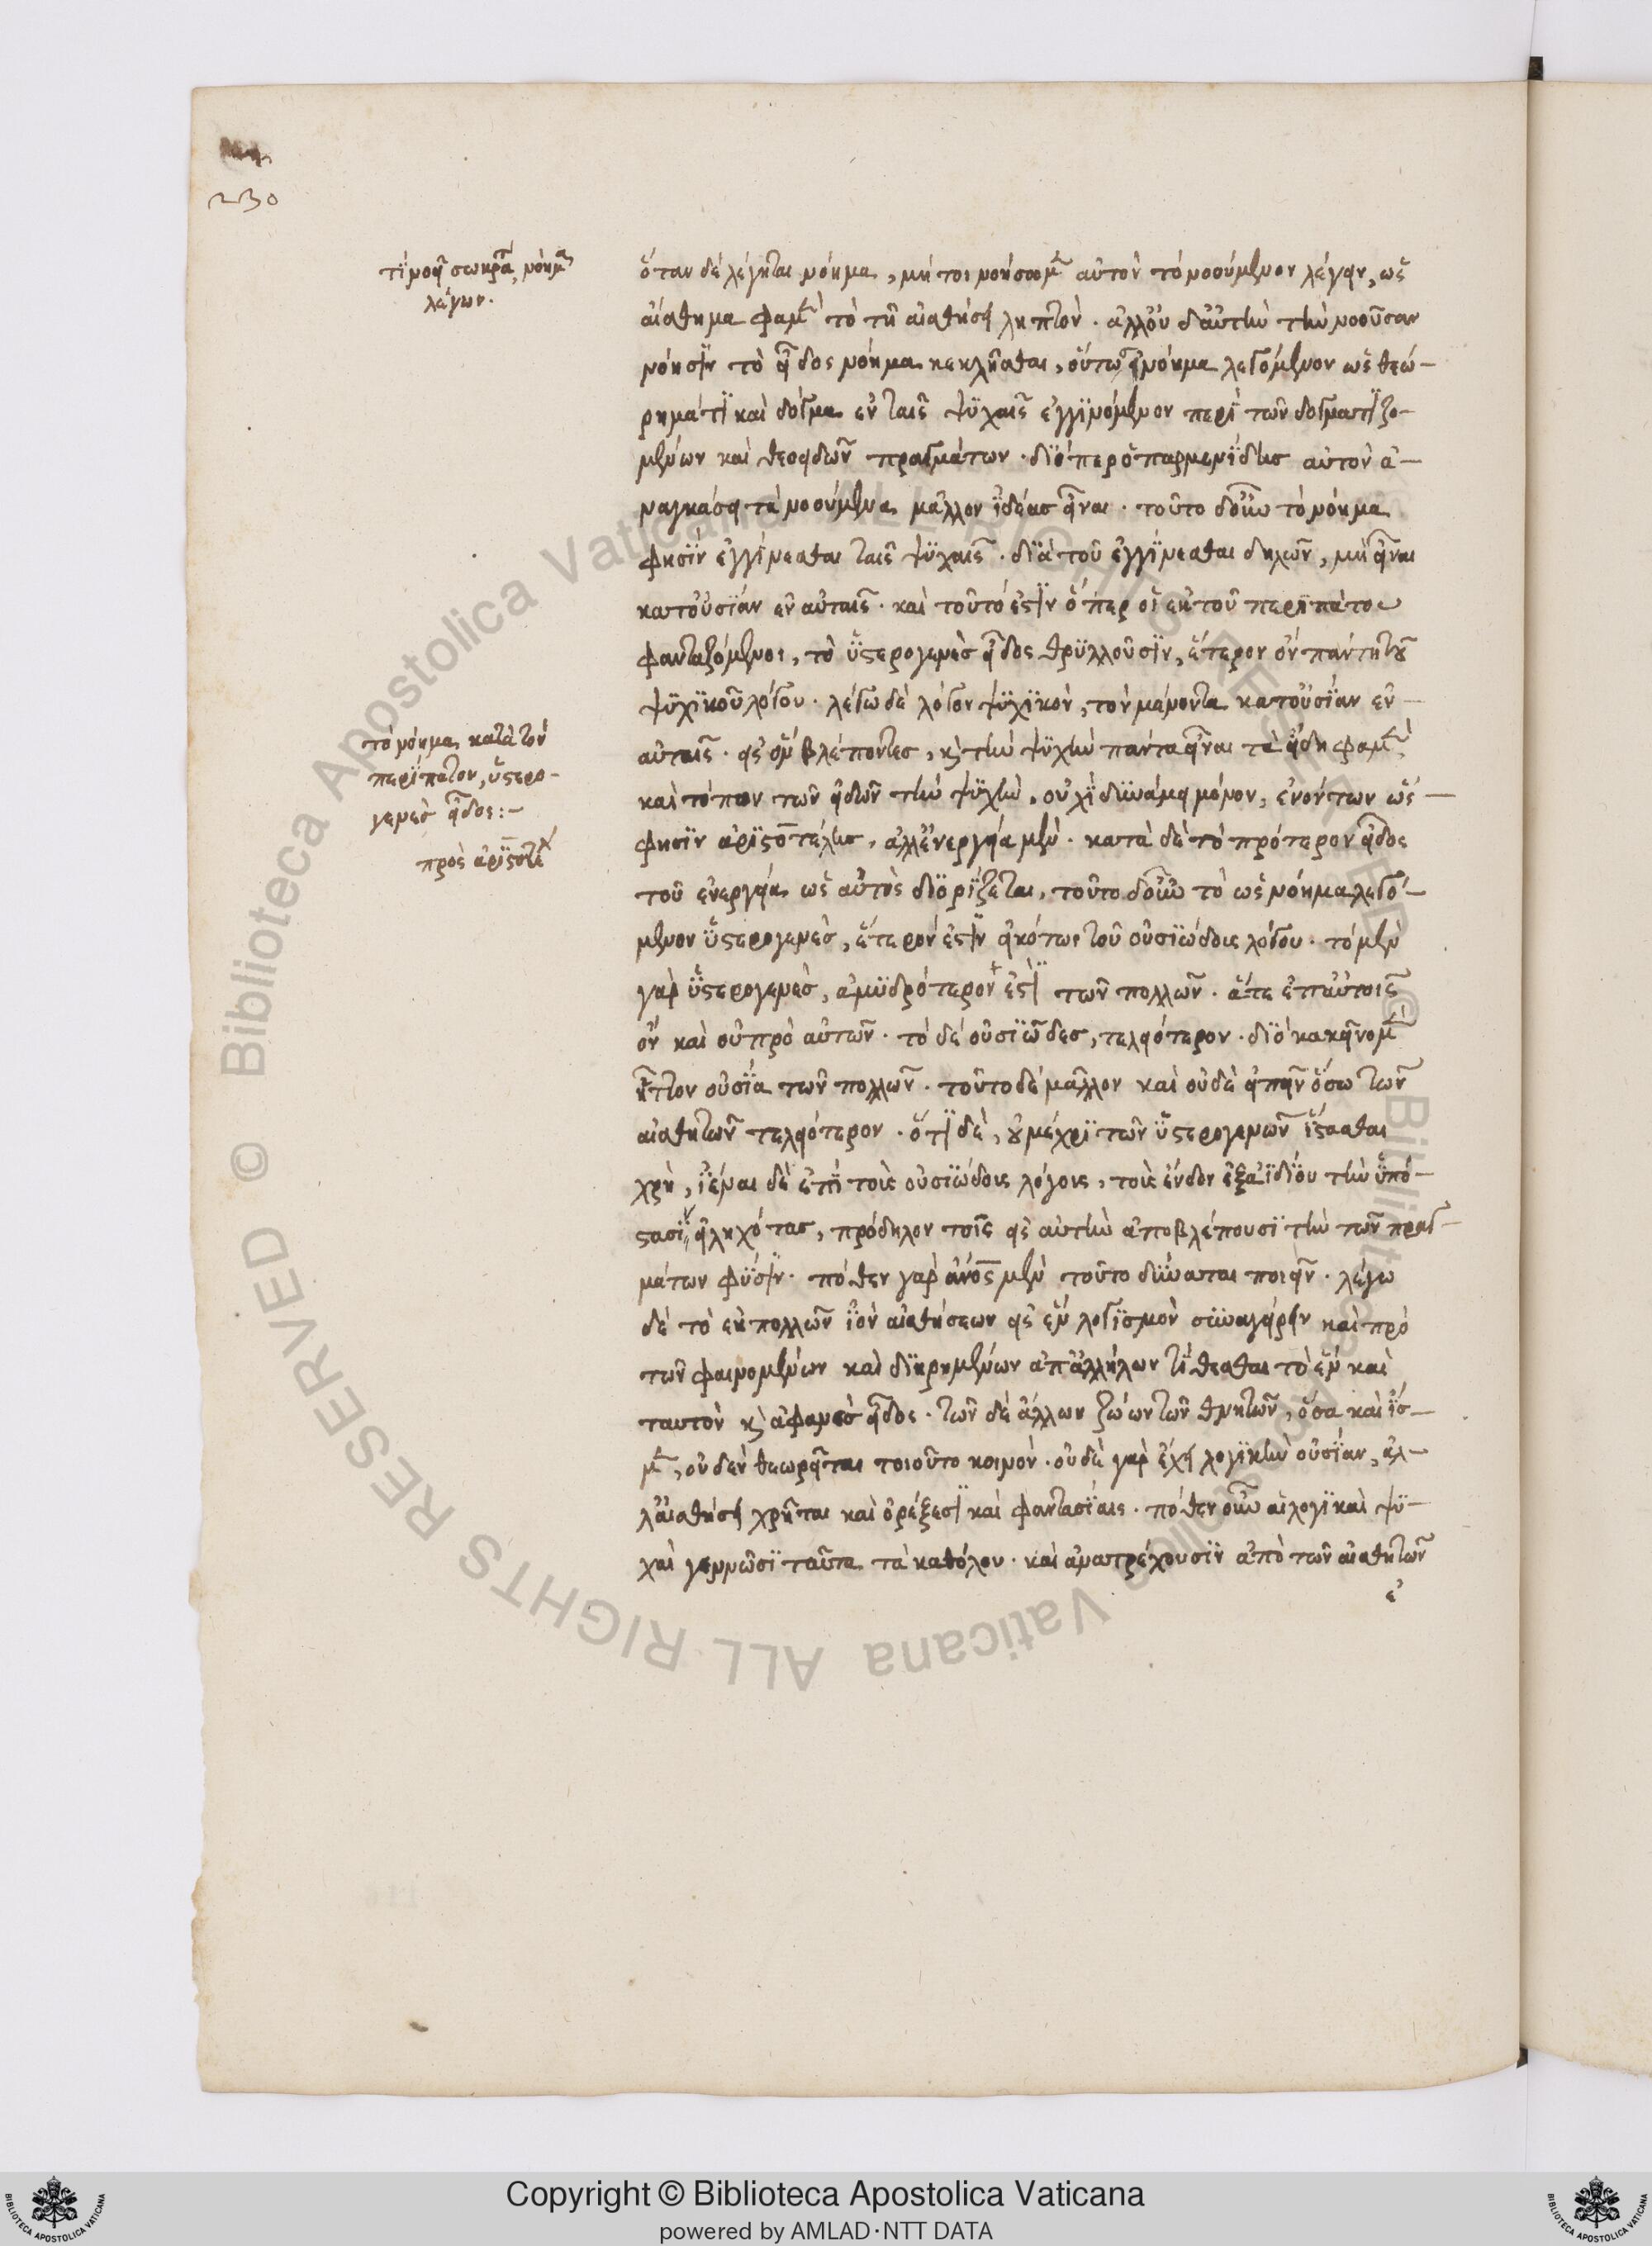 230
τί νοεῖ σωκρά, νόημα
λέγων.
ὅταν δὲ λέγηται νόημα, μή τοι νοήσωμεν αὐτὸν τὸ νοούμενον λέγειν, ὡς
αἴσθημα φαμὲν τὸ τῆ αἰσθήσει ληπτόν. ἀλλ' οὐδ' αὐτὴν τὴν νοοῦσαν
νόησιν τὸ εἶδος νόημα κεκλῆσθαι, οὕτω νόημα λεγόμενον ὡς θεώ-
ρημά τι καὶ δόγμα ἐν ταῖς ψυχαῖς ἐγγινόμενον περὶ τῶν δογματιζο-
μένων καὶ θεοειδῶν πραγμάτων. διόπερ ὁ παρμενίδης αὐτὸν ἀ-
ναγκάσει τὰ νοούμενα μᾶλλον ἰδέας εἶναι. τοῦτο δ' οὖν τὸ νόημα
φησὶν ἐγγίνεσθαι ταῖς ψυχαῖς. διὰ τοῦ ἐγγίνεσθαι δηλῶν, μὴ εἶναι
κατ' οὐσίαν ἐν αὐταῖς. καὶ τοῦτό ἐστιν ὅπερ οἱ ἐκ τοῦ περιπάτου
φανταζόμενοι, τὸ ὑστερογενὲς εἶδος θρυλλοῦσιν, ἕτερον ὂν πάντη τοῦ
ψυχικοῦ λόγου. λέγω δὲ λόγον ψυχικὸν, τὸν μένοντα κατ' οὐσίαν ἐν
αὐταῖς. εἰς ὃν βλέποντες, καὶ τὴν ψυχὴν πάντα εἶναι τὰ εἴδη φαμὲν
καὶ τόπον τῶν εἰδῶν τὴν ψυχὴν, οὐχὶ δυνάμει μόνον, ἐνόντων ὥς
φησιν ἀριστοτέλης, ἀλλ' ἐνεργεία μὲν. κατὰ δὲ τὸ πρότερον εἶδος
τοῦ ἐνεργεία ὡς αὐτὸς διορίζεται, τοῦτο δ' οὖν τὸ ὡς νόημα λεγό-
μενον ὑστερογενὲς, ἕτερόν ἐστιν εἰκότως τοῦ οὐσιώδους λόγου. τὸ μὲν
γὰρ ὑστερογενὲς, ἀμυδρότερον ἐστὶ τῶν πολλῶν. ἅτε ἐπ' αὐτοῖς
ὂν καὶ οὐ πρὸ αὐτῶν. τὸ δὲ οὐσιῶδες, τελειότερον. διὸ κακεῖνο μὲν
ἧττον οὐσία τῶν πολλῶν. τοῦτο δὲ μᾶλλον καὶ οὐδὲ εἰπεῖν ὅσω τῶν
αἰσθητῶν τελειότερον. ὅτι δὲ, οὐ μέχρι τῶν ὑστερογενῶν ἵστασθαι
χρὴ, ἰέναι δὲ ἐπὶ τοὺς οὐσιώδεις λόγους, τοὺς ἔνδον ἐξ ἀϊδίου τὴν ὑπό-
στασιν εἰληχότας, πρόδηλον τοῖς εἰς αὐτὴν ἀποβλέπουσι τὴν τῶν πραγ-
μάτων φύσιν. πόθεν γὰρ ἄνος μὲν τοῦτο δύναται ποιεῖν. λέγω
δὲ τὸ ἐκ πολλῶν ἰὸν αἰσθήσεων εἰς ἓν λογισμὸν συναγείρειν καὶ πρὸ
τῶν φαινομένων καὶ διῃρημένων ἀπ' ἀλλήλων τίθεσθαι τὸ ἓν καὶ
ταυτὸν καὶ ἀφανὲς εἶδος. τῶν δὲ ἄλλων ζώων τῶν θνητῶν, ὅσα καὶ ἴσ-
μεν, οὐδὲν θεωρεῖται τοιοῦτο κοινόν. οὐδὲ γὰρ ἔχει λογικὴν οὐσίαν, ἀλ-
λ' αἰσθήσει χρῆται καὶ ὀρέξεσι καὶ φαντασίαις. πόθεν οὖν αἱ λογικαὶ ψυ-
χαὶ γεννῶσι ταῦτα τὰ καθόλου. καὶ ἀνατρέχουσιν ἀπὸ τῶν αἰσθητῶν
ἐ
τὸ νόημα κατὰ τὸν
περίπατον, ὑστερο-
γενὲς εἶδος:-
πρὸς ἀριστοτέλ
Copyright © Biblioteca Apostolica Vaticana
powered by AMLAD·NTT DATA
© Biblioteca Apostolica Vaticana ALL RIGHTS RESERVED